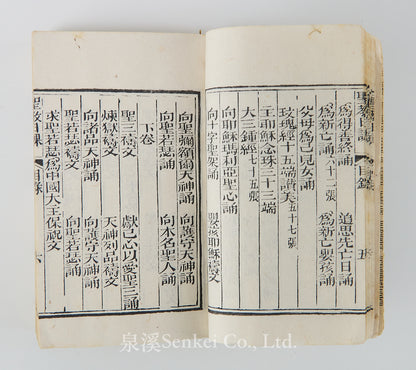 聖教日課 目錄 五
為得善終誦 六十二張 追思先亡日誦
為新亡誦 為新亡嬰孩誦
父母為己兒女誦
玫瑰經十五端讚美 五十七張
主耶穌念珠三十三端
大三鍾經 十五張
向耶穌瑪利亞聖心誦
向十字聖架誦 耶穌禱文
向聖彌額爾天神誦 向護守天神誦
向聖若瑟誦 向本名聖人誦
下卷
聖三禱文 獻己心以愛聖三誦
煉獄禱文 天神列品禱文
向諸品天神誦 向護守天神誦
聖若瑟禱文 向聖若瑟誦
求聖若瑟為中國大主保祝文
聖教日課 目錄 六
泉溪Senkei Co., Ltd.